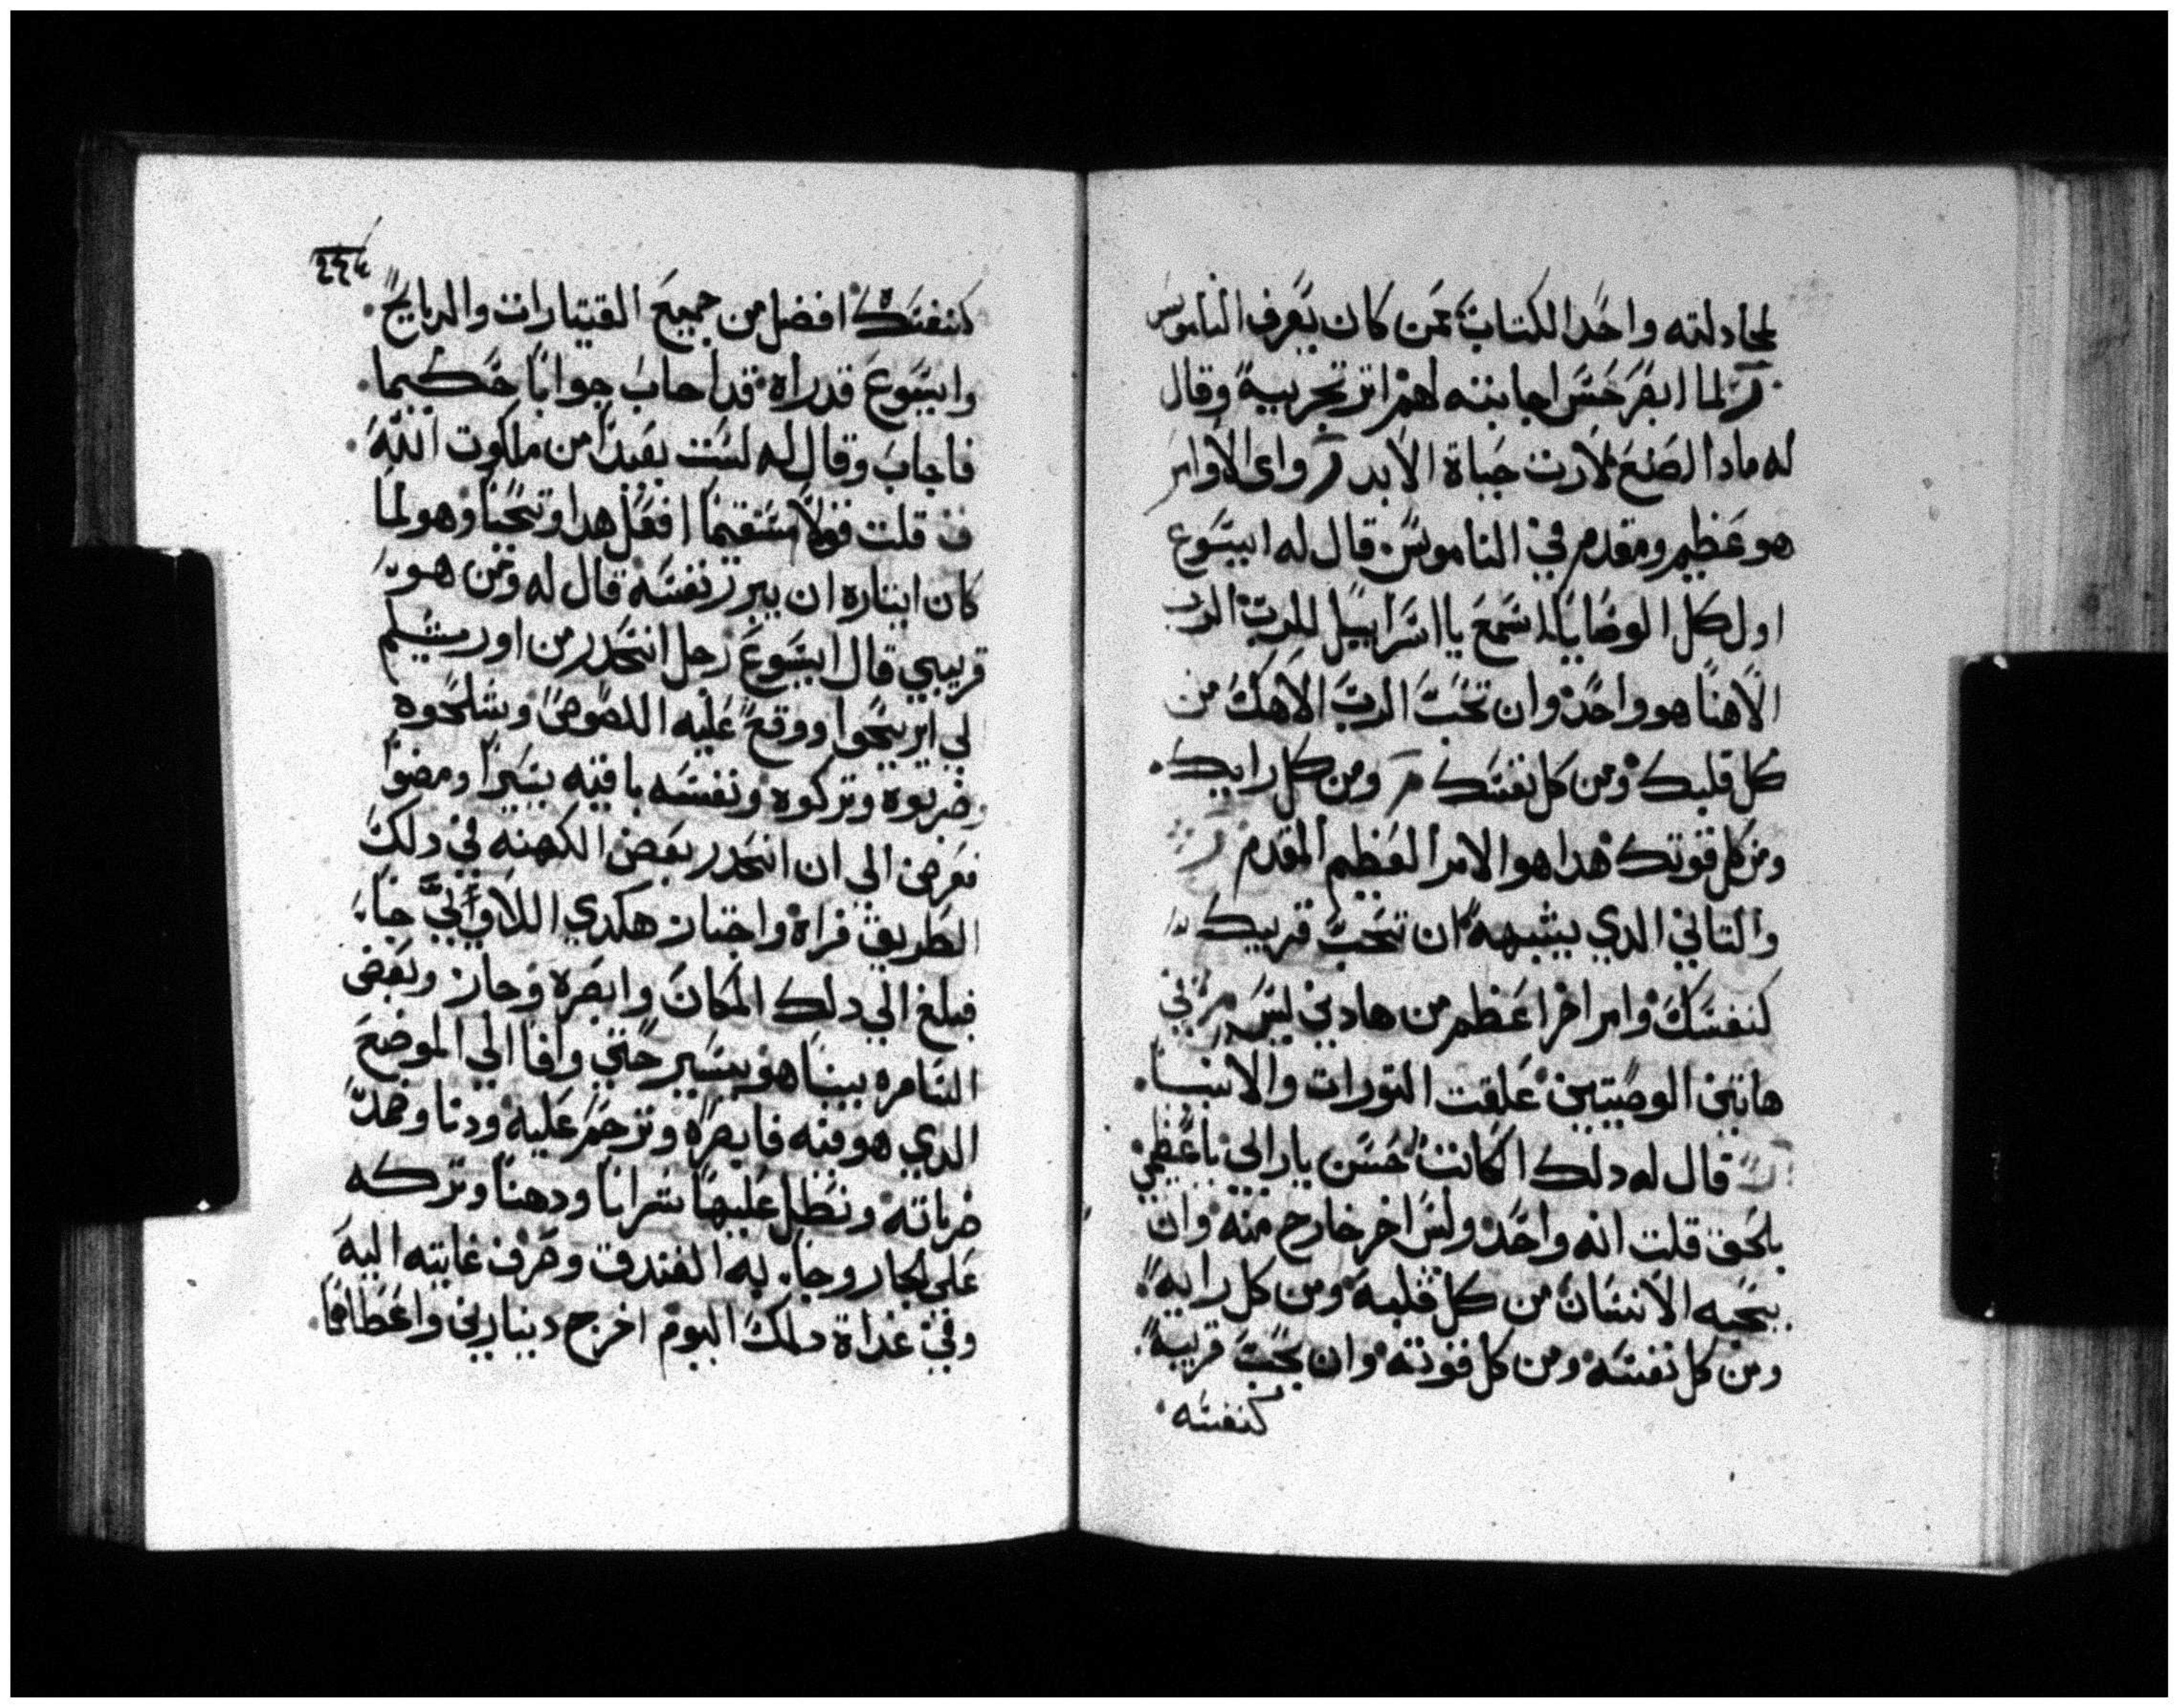 لمجادلته واحدا لكتاب ممن كان يعرف الناموس
مر لما ابصر حسن اجابته لهم اثر تجريبه وقال
له مادا الصنع لارت حياة الابد مر واى الاوامر
هو عظيم ومقدم في الناموس قال له ايسوع
اول كل الوصايا اسمع يا اسراييل الرب
الاهنا هو واحد وان تحب الرب الاهك من
كل قلبك ومن كل نفسك مر ومن كل رايك
ومن كل قوتك هدا هو الامر العظيم المقدم
والتاني الدي يشبهه ان تحب قريبك
كنفسك وامر اخر اعظم من هادين ليس في
هاتين الوصيتين علقت التورات والانبيا
قال له دلك الكاتب حسن يارابي باعظمي
بلحق قلت انه واحد وليس اخر خارج منه وان
يحبه الانسان من كل قلبه ومن كل رايه
ومن كل نفسه ومن كل قوته وان يحب قريبه
كنفسه
٢٤٤
كنفسك افضل من جميع القيتارات والدبايح
وايسوع قد راه قد اجاب جوابا حكيما
فاجاب وقال له لست بعيدا من ملكوت الله
قلت قولا مستقيما افعل هدا وتحيا وهو لما
كان ايتاره ان يبرر نفسه قال له ومن هو
قريبي قال ايسوع رجل انحدر من اورشليم
لي ايريحوا ووقع عليه اللصوص وشلحوه
وضربوه وتركوه ونفسه باقيه يسيرا ومضوا
فعرض الي ان انحدر بعض الكهنه في دلك
الطريق فراه واجتاز هكدي اللاوي جا
فبلغ الي دلك المكان وابصره وجاز وبعض
السامره بينا هو يسير حتي وافا الي الموضع
الدي هو فيه فابصره وترحم عليه ودنا وضمد
ضرباته ونطل عليها شرابا ودهنا وتركه
على الحمار وجا به الفندق وصرف عنايته اليه
وفي غداة دلك اليوم اخرج دينارين واعطاهما